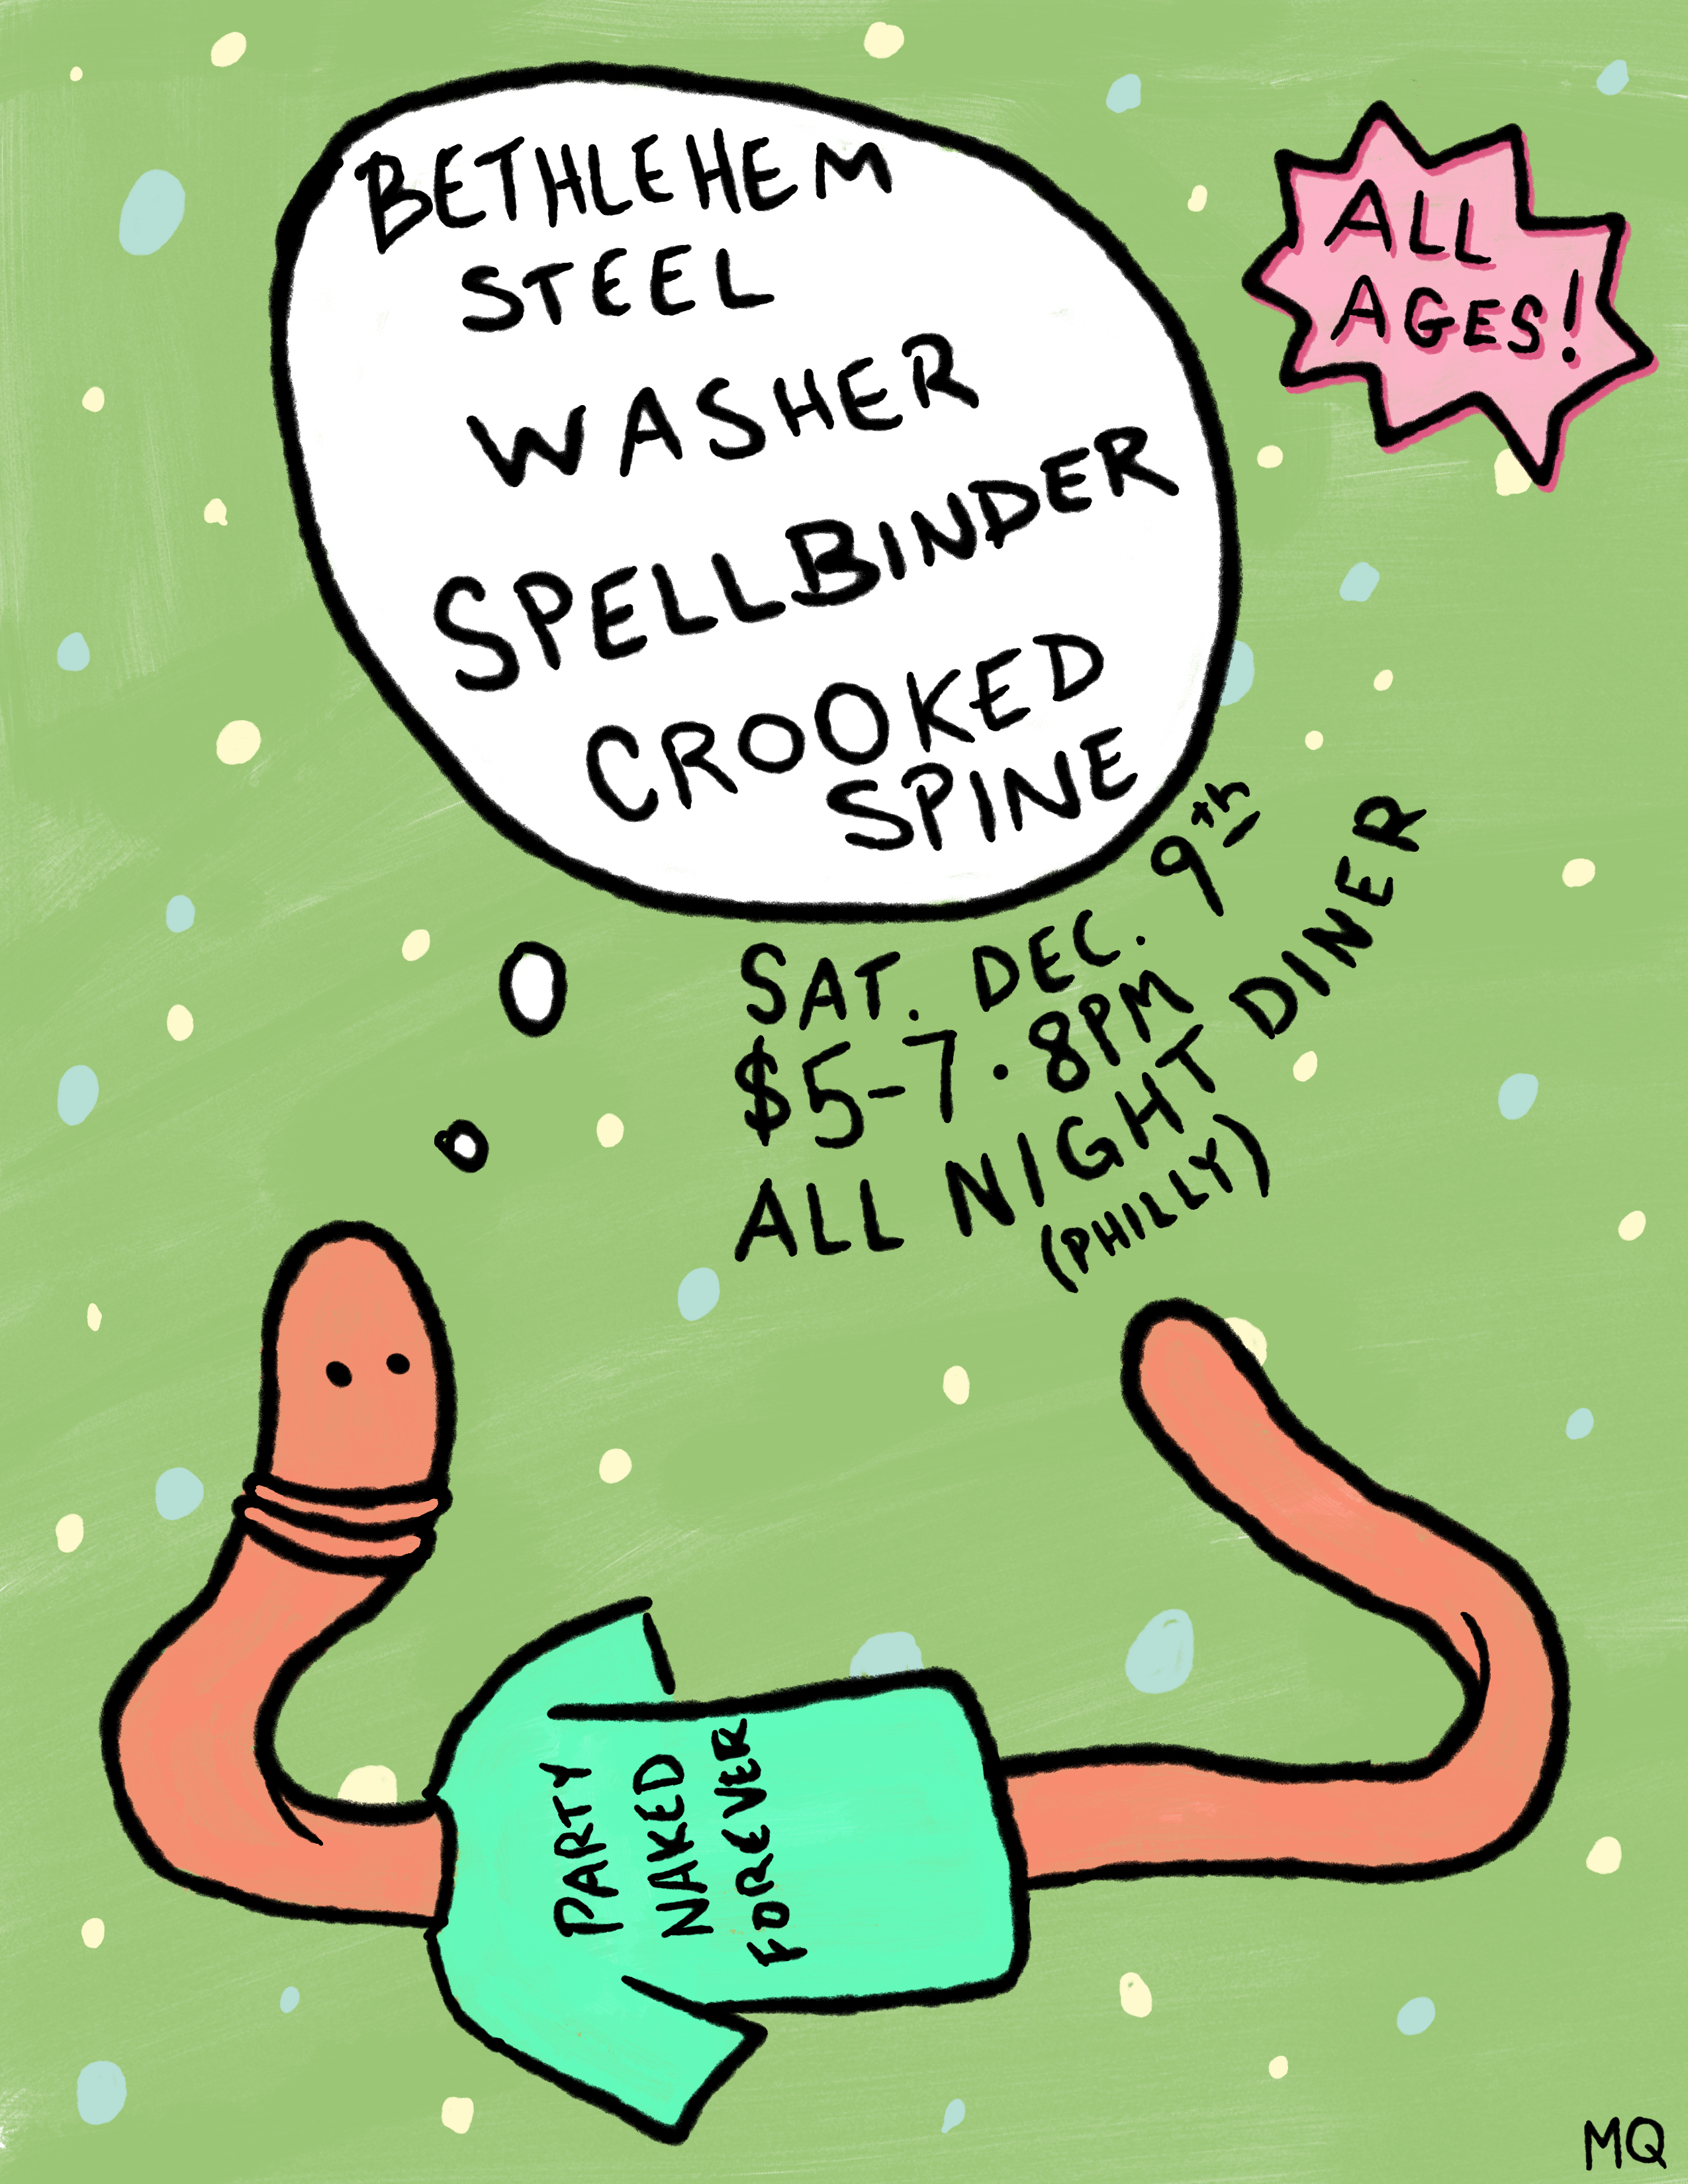 BETHLEHEM
STEEL
WASHER
SPELLBINDER
CROOKED
SPINE
ALL
AGES!
SAT. DEC. 9th
$5-7 • 8PM
ALL NIGHT DINER
(PHILLY)
PARTY
NAKED
FOREVER
MQ